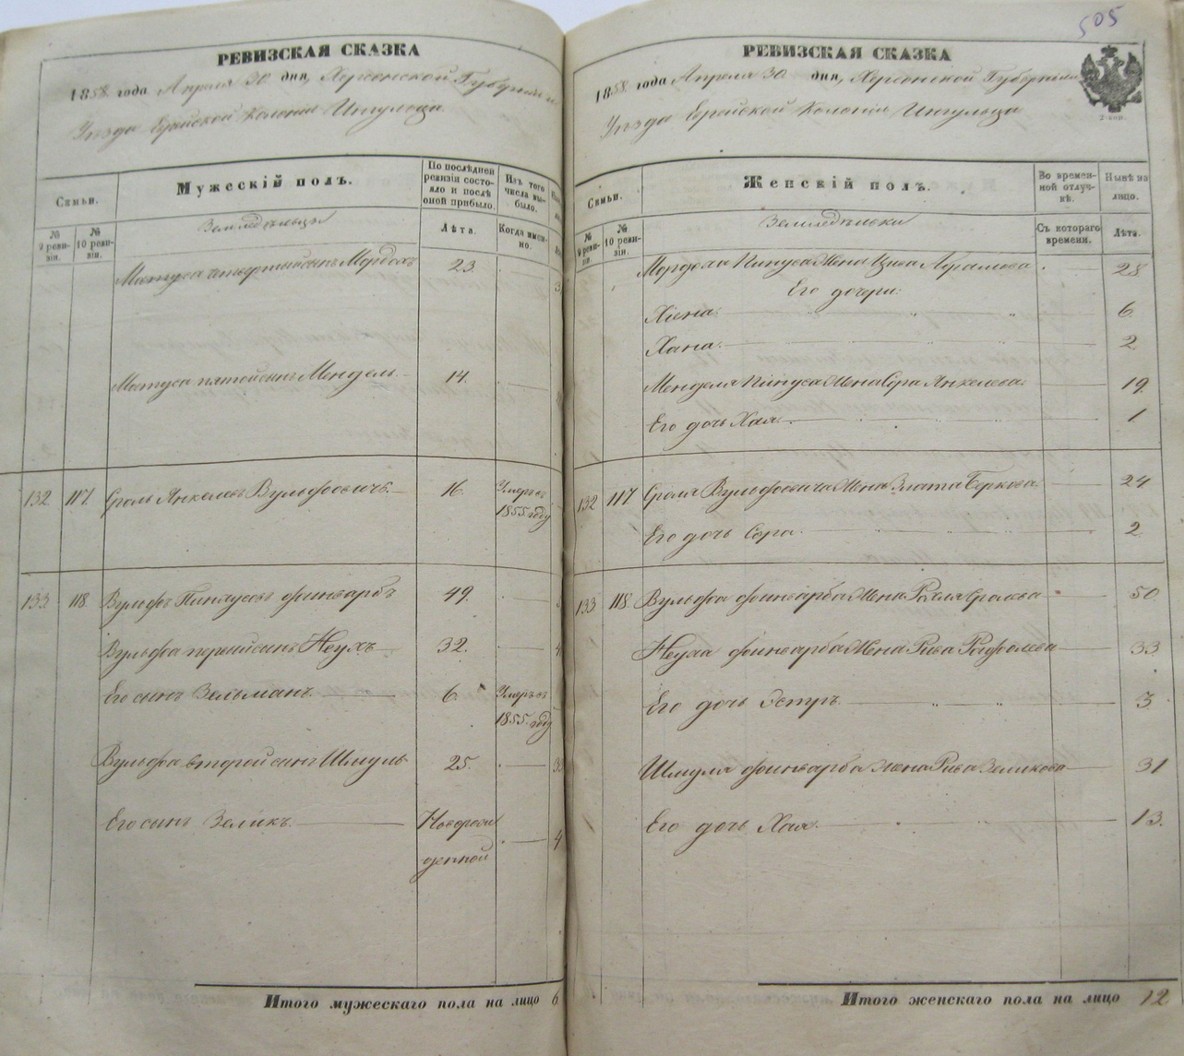 РЕВИЗСКАЯ СКАЗКА
1858 года Апреля 30 дня, Херсонской Губернии
Уезда Еврейской Колонии Ингульца
Семьи.
№ 9 ревизіи.
№ 10 ревизіи.
Мужескій полъ.
По послѣдней ревизіи состояло и послѣ оной прибыло.
Изъ того числа выбыло.
Лѣта.
Когда именно.
Земледѣльцы
Матуса четвертый сынъ Мордохъ 23.
Матуса пятый сынъ Мендель 14.
132 117 Сроль Янкелевъ Вульфовичъ 16. Умеръ въ 1855 году
133 118 Вульфъ Пинхусовъ Финварбъ 49.
Вульфа первый сынъ Неухъ 32.
Его сынъ Зельманъ 6 Умеръ въ 1855 году
Вульфа второй сынъ Шмуль 25.
Его сынъ Зеликъ Новорожденной
Итого мужескаго пола на лицо 6
505
РЕВИЗСКАЯ СКАЗКА
1858 года Апреля 30 дня, Херсонской Губерніи
Уезда Еврейской Колоніи Ингульца
2 коп.
Семьи.
№ 9 ревизіи.
№ 10 ревизіи.
Женскій полъ.
Во временной отлучкѣ.
Нынѣ на лицо.
Съ котораго времени.
Лѣта.
Земледѣльки
Мордоха Пинуса жена Цива Абрамова 28
Его дочери:
Хіена 6.
Хана 2
Менделя Пинуса жена Сора Янкелева 19
Его дочь Хая 1
132 117 Сроля Вульфовича жена Злата Беркова 24
Его дочь Сора 2
133 118 Вульфа Финварба жена Рахля Сролева 50
Неуха Финварба жена Рива Рафолева 33
Его дочь Эстръ 3
Шмуля Финварба жена Рива Зеликова 31
Его дочь Хая 13.
Итого женскаго пола на лицо 12